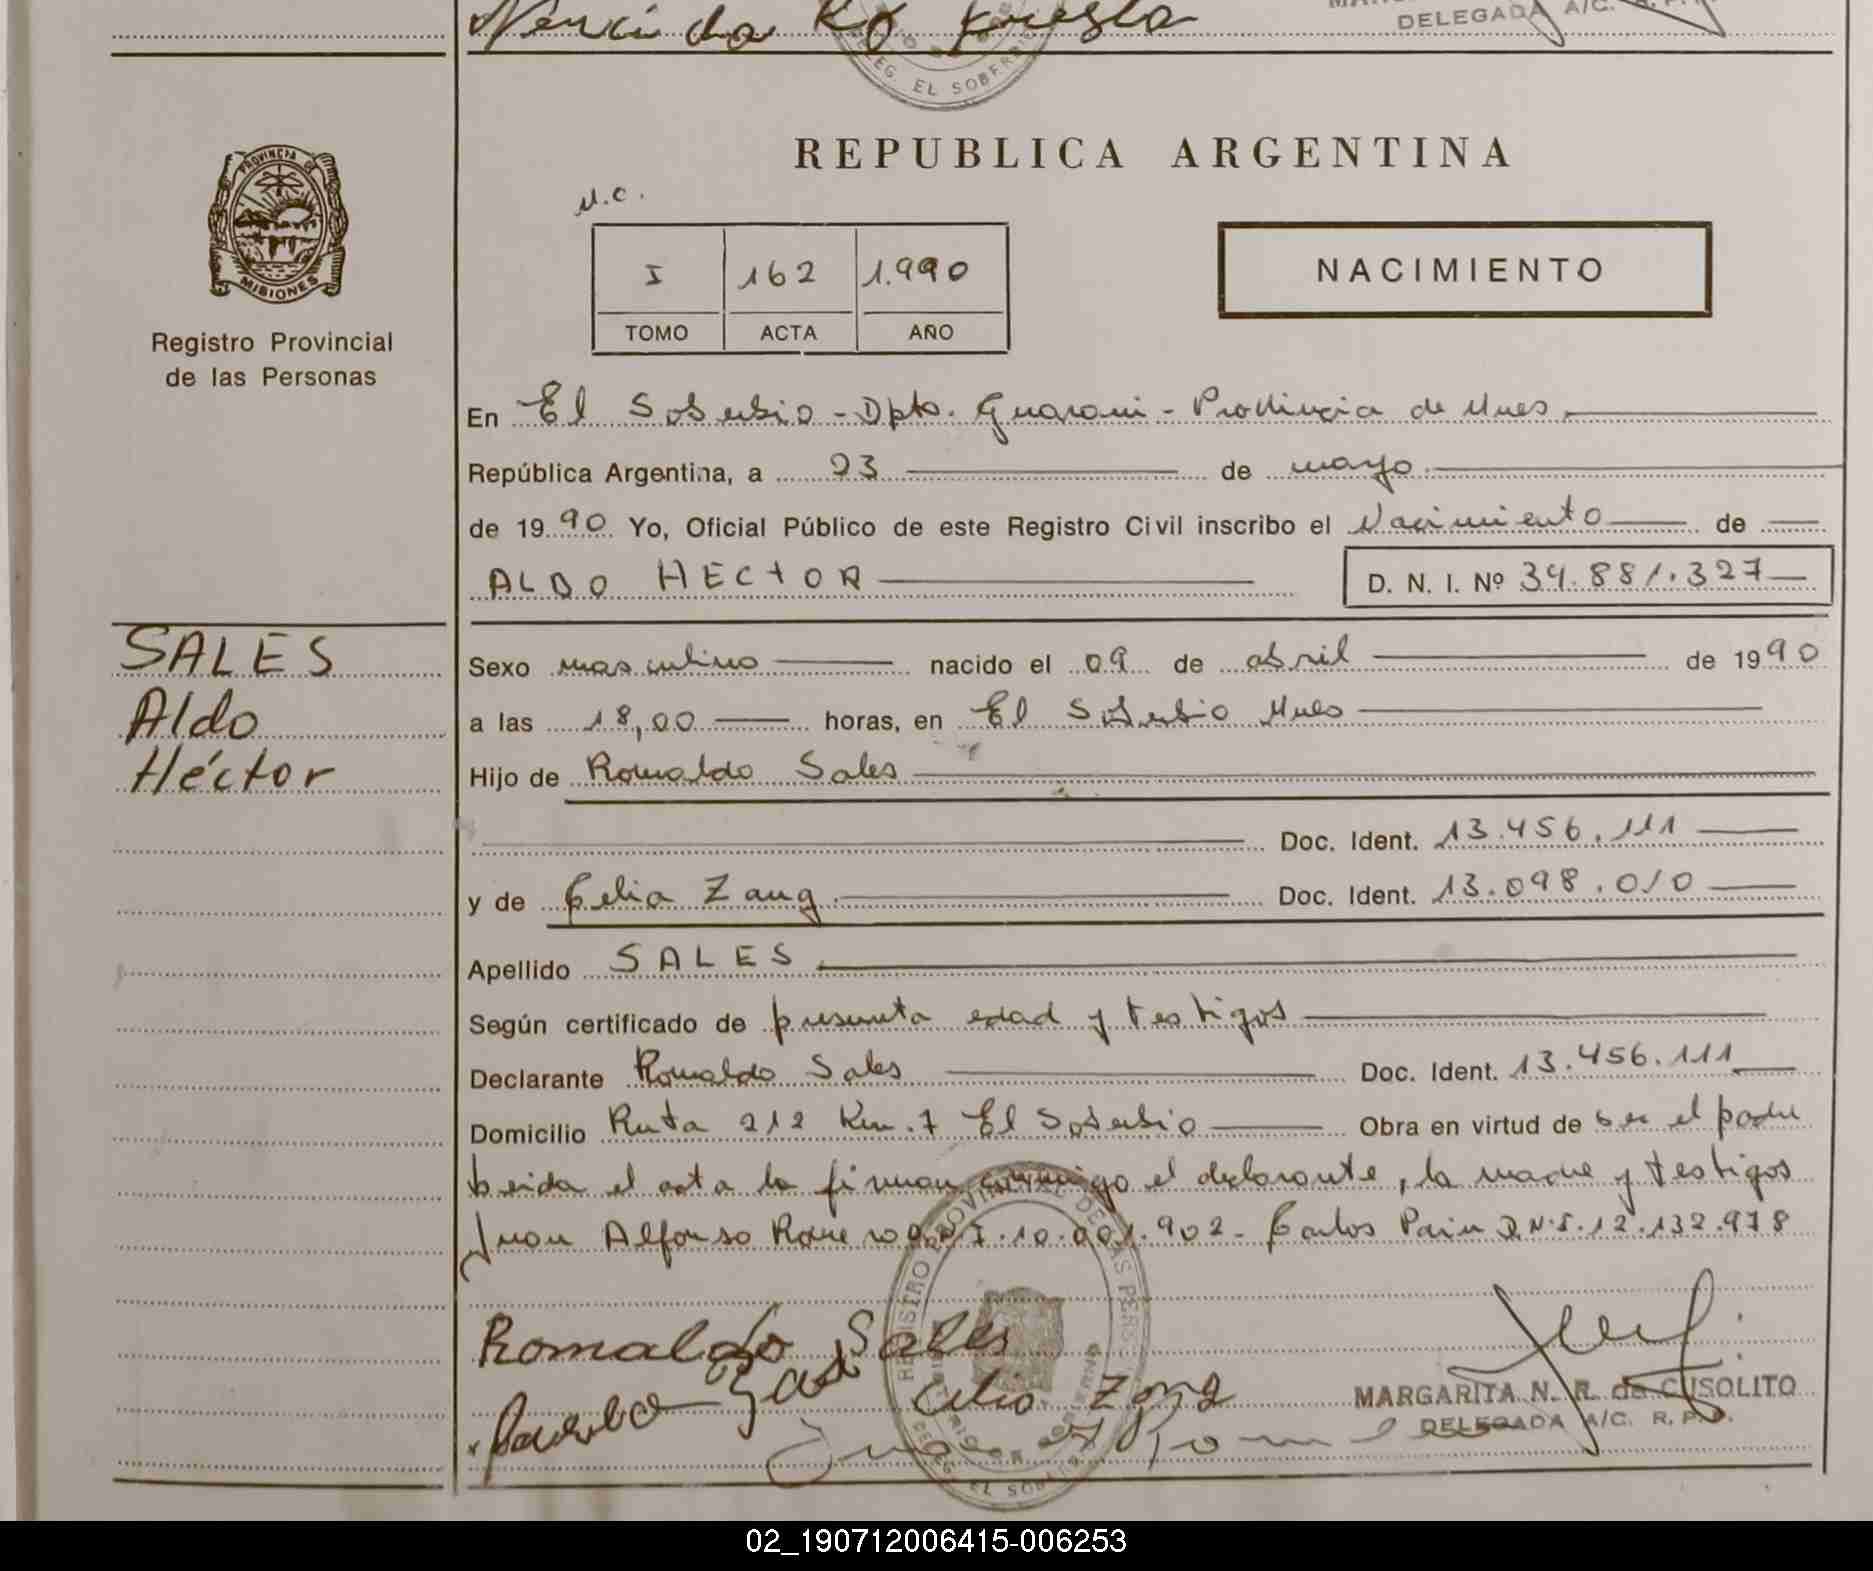 DELEGADA A/C. R. P.
DELEG. EL SOBERBIO
PROVINCIA DE
MISIONES
Registro Provincial
de las Personas
REPUBLICA ARGENTINA
M.C.
I 162 1.990
TOMO ACTA AÑO
NACIMIENTO
En El Soberbio - Dpto. Guarani - Provincia de Mnes
República Argentina, a 23 de mayo
de 1990 Yo, Oficial Público de este Registro Civil inscribo el Nacimiento de
ALDO HECTOR D. N. I. Nº 34.881.327
SALES
Aldo
Héctor
Sexo masculino nacido el 09 de abril de 1990
a las 18,00 horas, en El Soberbio Mnes
Hijo de Romaldo Sales
Doc. Ident. 13.456.111
y de Celia Zang Doc. Ident. 13.098.010
Apellido SALES
Según certificado de presunta edad y testigos
Declarante Romaldo Sales Doc. Ident. 13.456.111
Domicilio Ruta 212 Km. 7 El Soberbio Obra en virtud de ser el padre
Leida el acta la firman conmigo el declarante, la madre y testigos
Juan Alfonso 10.001.902 - Carlos D.N.I. 12.132.978
Romaldo Sales
Celia Zang
MARGARITA N. R. de CUSOLITO
DELEGADA A/C. R. P.
REGISTRO PROVINCIAL DE LAS PERS.
DELEG. EL SOBERBIO
02_190712006415-006253